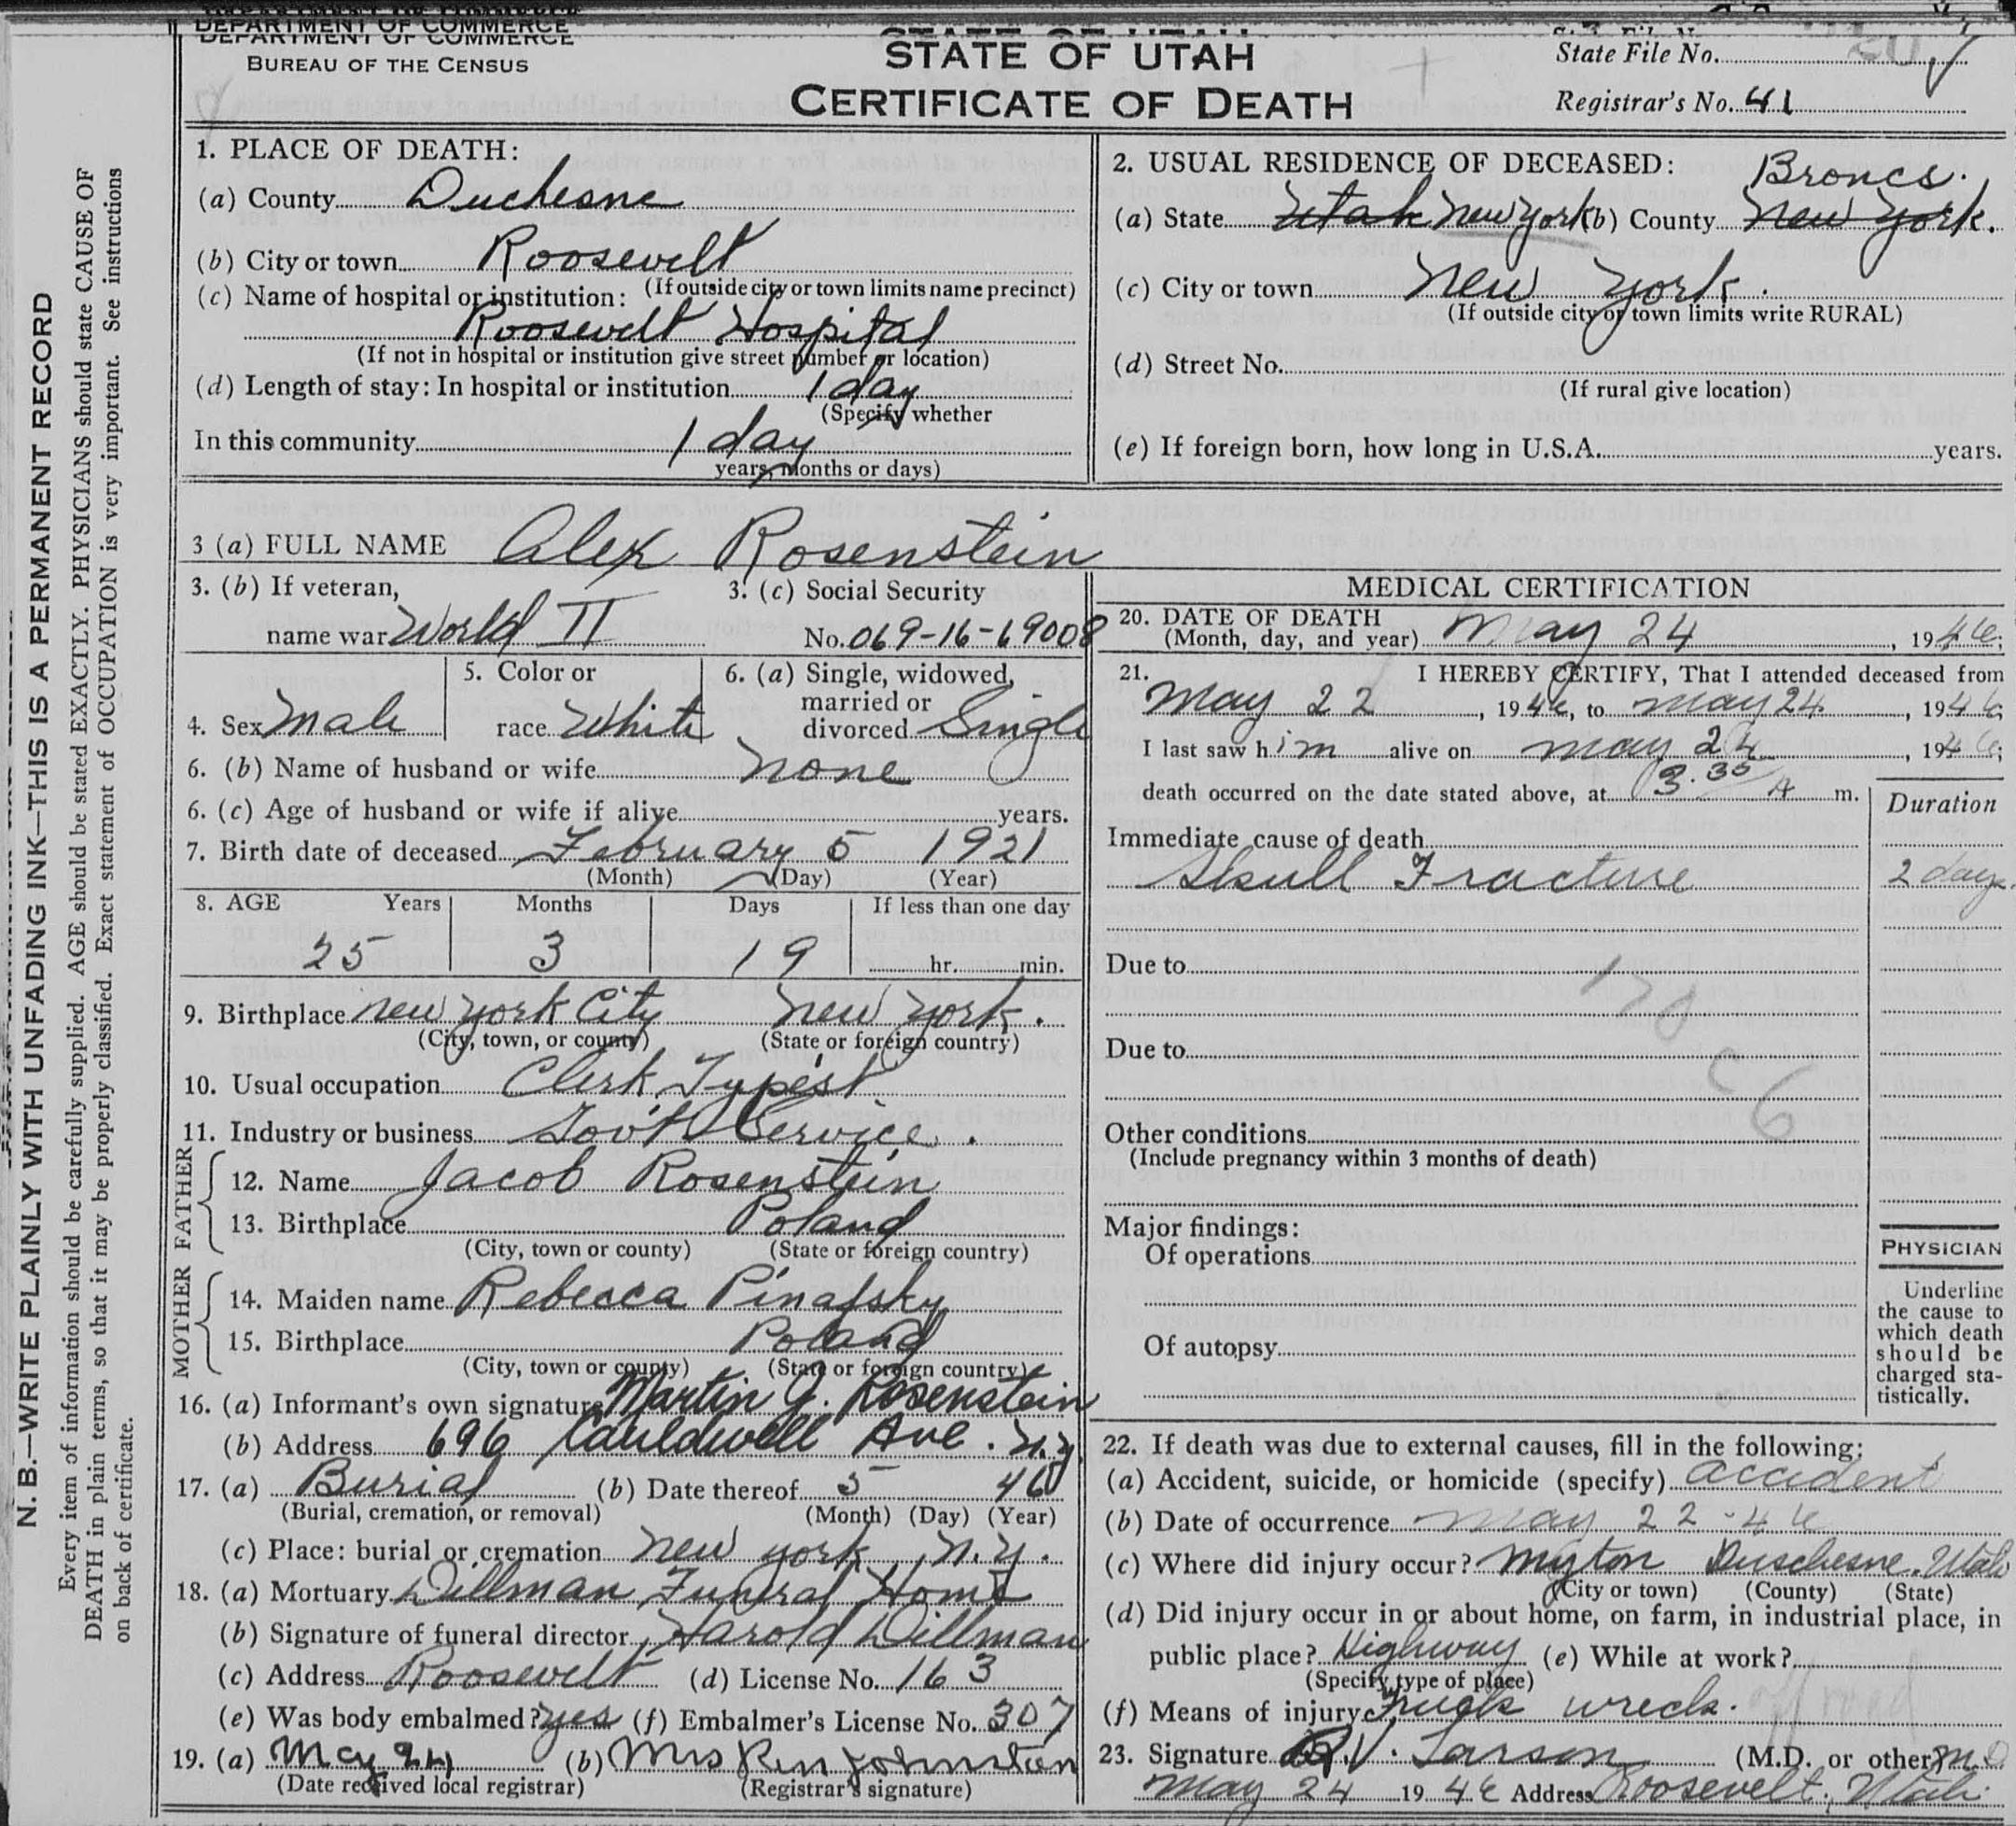 DEPARTMENT OF COMMERCE
BUREAU OF THE CENSUS
STATE OF UTAH
CERTIFICATE OF DEATH
State File No.
Registrar's No. 41
N. B.—WRITE PLAINLY WITH UNFADING INK—THIS IS A PERMANENT RECORD
Every item of information should be carefully supplied. AGE should be stated EXACTLY. PHYSICIANS should state CAUSE OF
DEATH in plain terms, so that it may be properly classified. Exact statement of OCCUPATION is very important. See instructions
on back of certificate.
1. PLACE OF DEATH:
(a) County Duchesne
(b) City or town Roosevelt
(If outside city or town limits name precinct)
(c) Name of hospital or institution:
Roosevelt Hospital
(If not in hospital or institution give street number or location)
(d) Length of stay: In hospital or institution 1 day
(Specify whether
In this community 1 day
years, months or days)
2. USUAL RESIDENCE OF DECEASED:
Broncs.
(a) State Utah New York (b) County New York.
(c) City or town New York.
(If outside city or town limits write RURAL)
(d) Street No.
(If rural give location)
(e) If foreign born, how long in U.S.A. years.
3 (a) FULL NAME Alex Rosenstein
3. (b) If veteran,
name war World II
3. (c) Social Security
No. 069-16-69008
4. Sex Male
5. Color or
race White
6. (a) Single, widowed,
married or
divorced Single
6. (b) Name of husband or wife None
6. (c) Age of husband or wife if alive years.
7. Birth date of deceased February 5 1921
(Month) (Day) (Year)
8. AGE Years Months Days If less than one day
25 3 19 hr. min.
9. Birthplace New York City New York.
(City, town, or county) (State or foreign country)
10. Usual occupation Clerk Typest
11. Industry or business Gov't Service.
FATHER
12. Name Jacob Rosenstein
13. Birthplace Poland
(City, town or county) (State or foreign country)
MOTHER
14. Maiden name Rebecca Pinafsky
15. Birthplace Poland
(City, town or county) (State or foreign country)
16. (a) Informant's own signature Martin J. Rosenstein
(b) Address 696 Cauldwell Ave. N.Y.
17. (a) Burial (b) Date thereof 5 46
(Burial, cremation, or removal) (Month) (Day) (Year)
(c) Place: burial or cremation New York, N.Y.
18. (a) Mortuary Dillman Funeral Home
(b) Signature of funeral director Harold Dillman
(c) Address Roosevelt (d) License No. 163
(e) Was body embalmed? yes (f) Embalmer's License No. 307
19. (a) May 24 (b) Mrs Johnston
(Date received local registrar) (Registrar's signature)
MEDICAL CERTIFICATION
20. DATE OF DEATH
(Month, day, and year) May 24, 1946;
21. I HEREBY CERTIFY, That I attended deceased from
May 22, 1946, to May 24, 1946;
I last saw him alive on May 24, 1946;
death occurred on the date stated above, at 3.30 A m.
Duration
Immediate cause of death
Skull Fracture 2 days
Due to
170
Due to
c6
Other conditions
(Include pregnancy within 3 months of death)
Major findings:
Of operations
Of autopsy
PHYSICIAN
Underline
the cause to
which death
should be
charged sta-
tistically.
22. If death was due to external causes, fill in the following:
(a) Accident, suicide, or homicide (specify) accident
(b) Date of occurrence May 22-46
(c) Where did injury occur? Myton Duschesne. Utah
(City or town) (County) (State)
(d) Did injury occur in or about home, on farm, in industrial place, in
public place? Highway (e) While at work?
(Specify type of place)
(f) Means of injury Truck wreck. off road
23. Signature Larson (M.D. or other) M.D
May 24 1946 Address Roosevelt, Utah